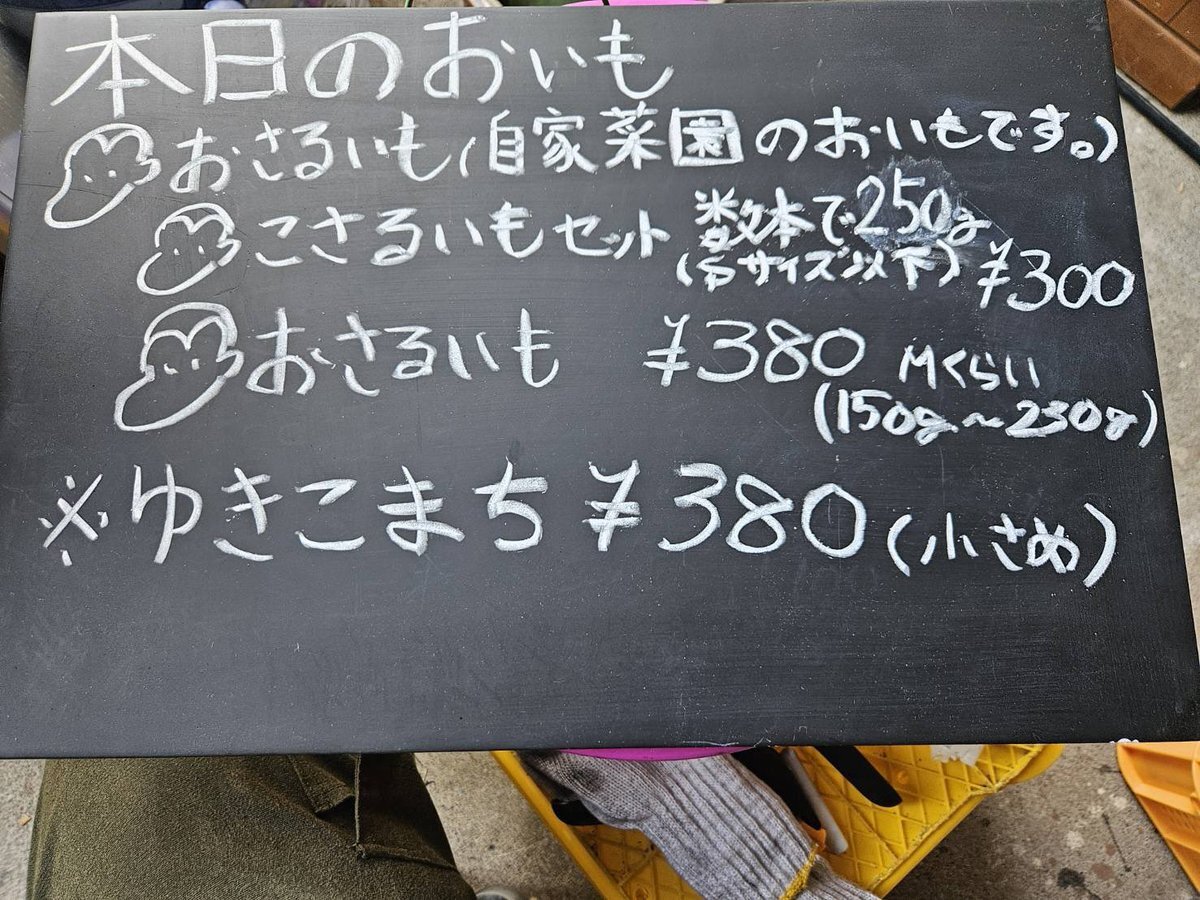 本日のおいも
おさるいも(自家菜園のおいもです。)
こさるいもセット 数本で250g
(Sサイズ以下) ¥300
おさるいも ¥380 Mくらい
(150g〜230g)
※ゆきこまち ¥380(小さめ)